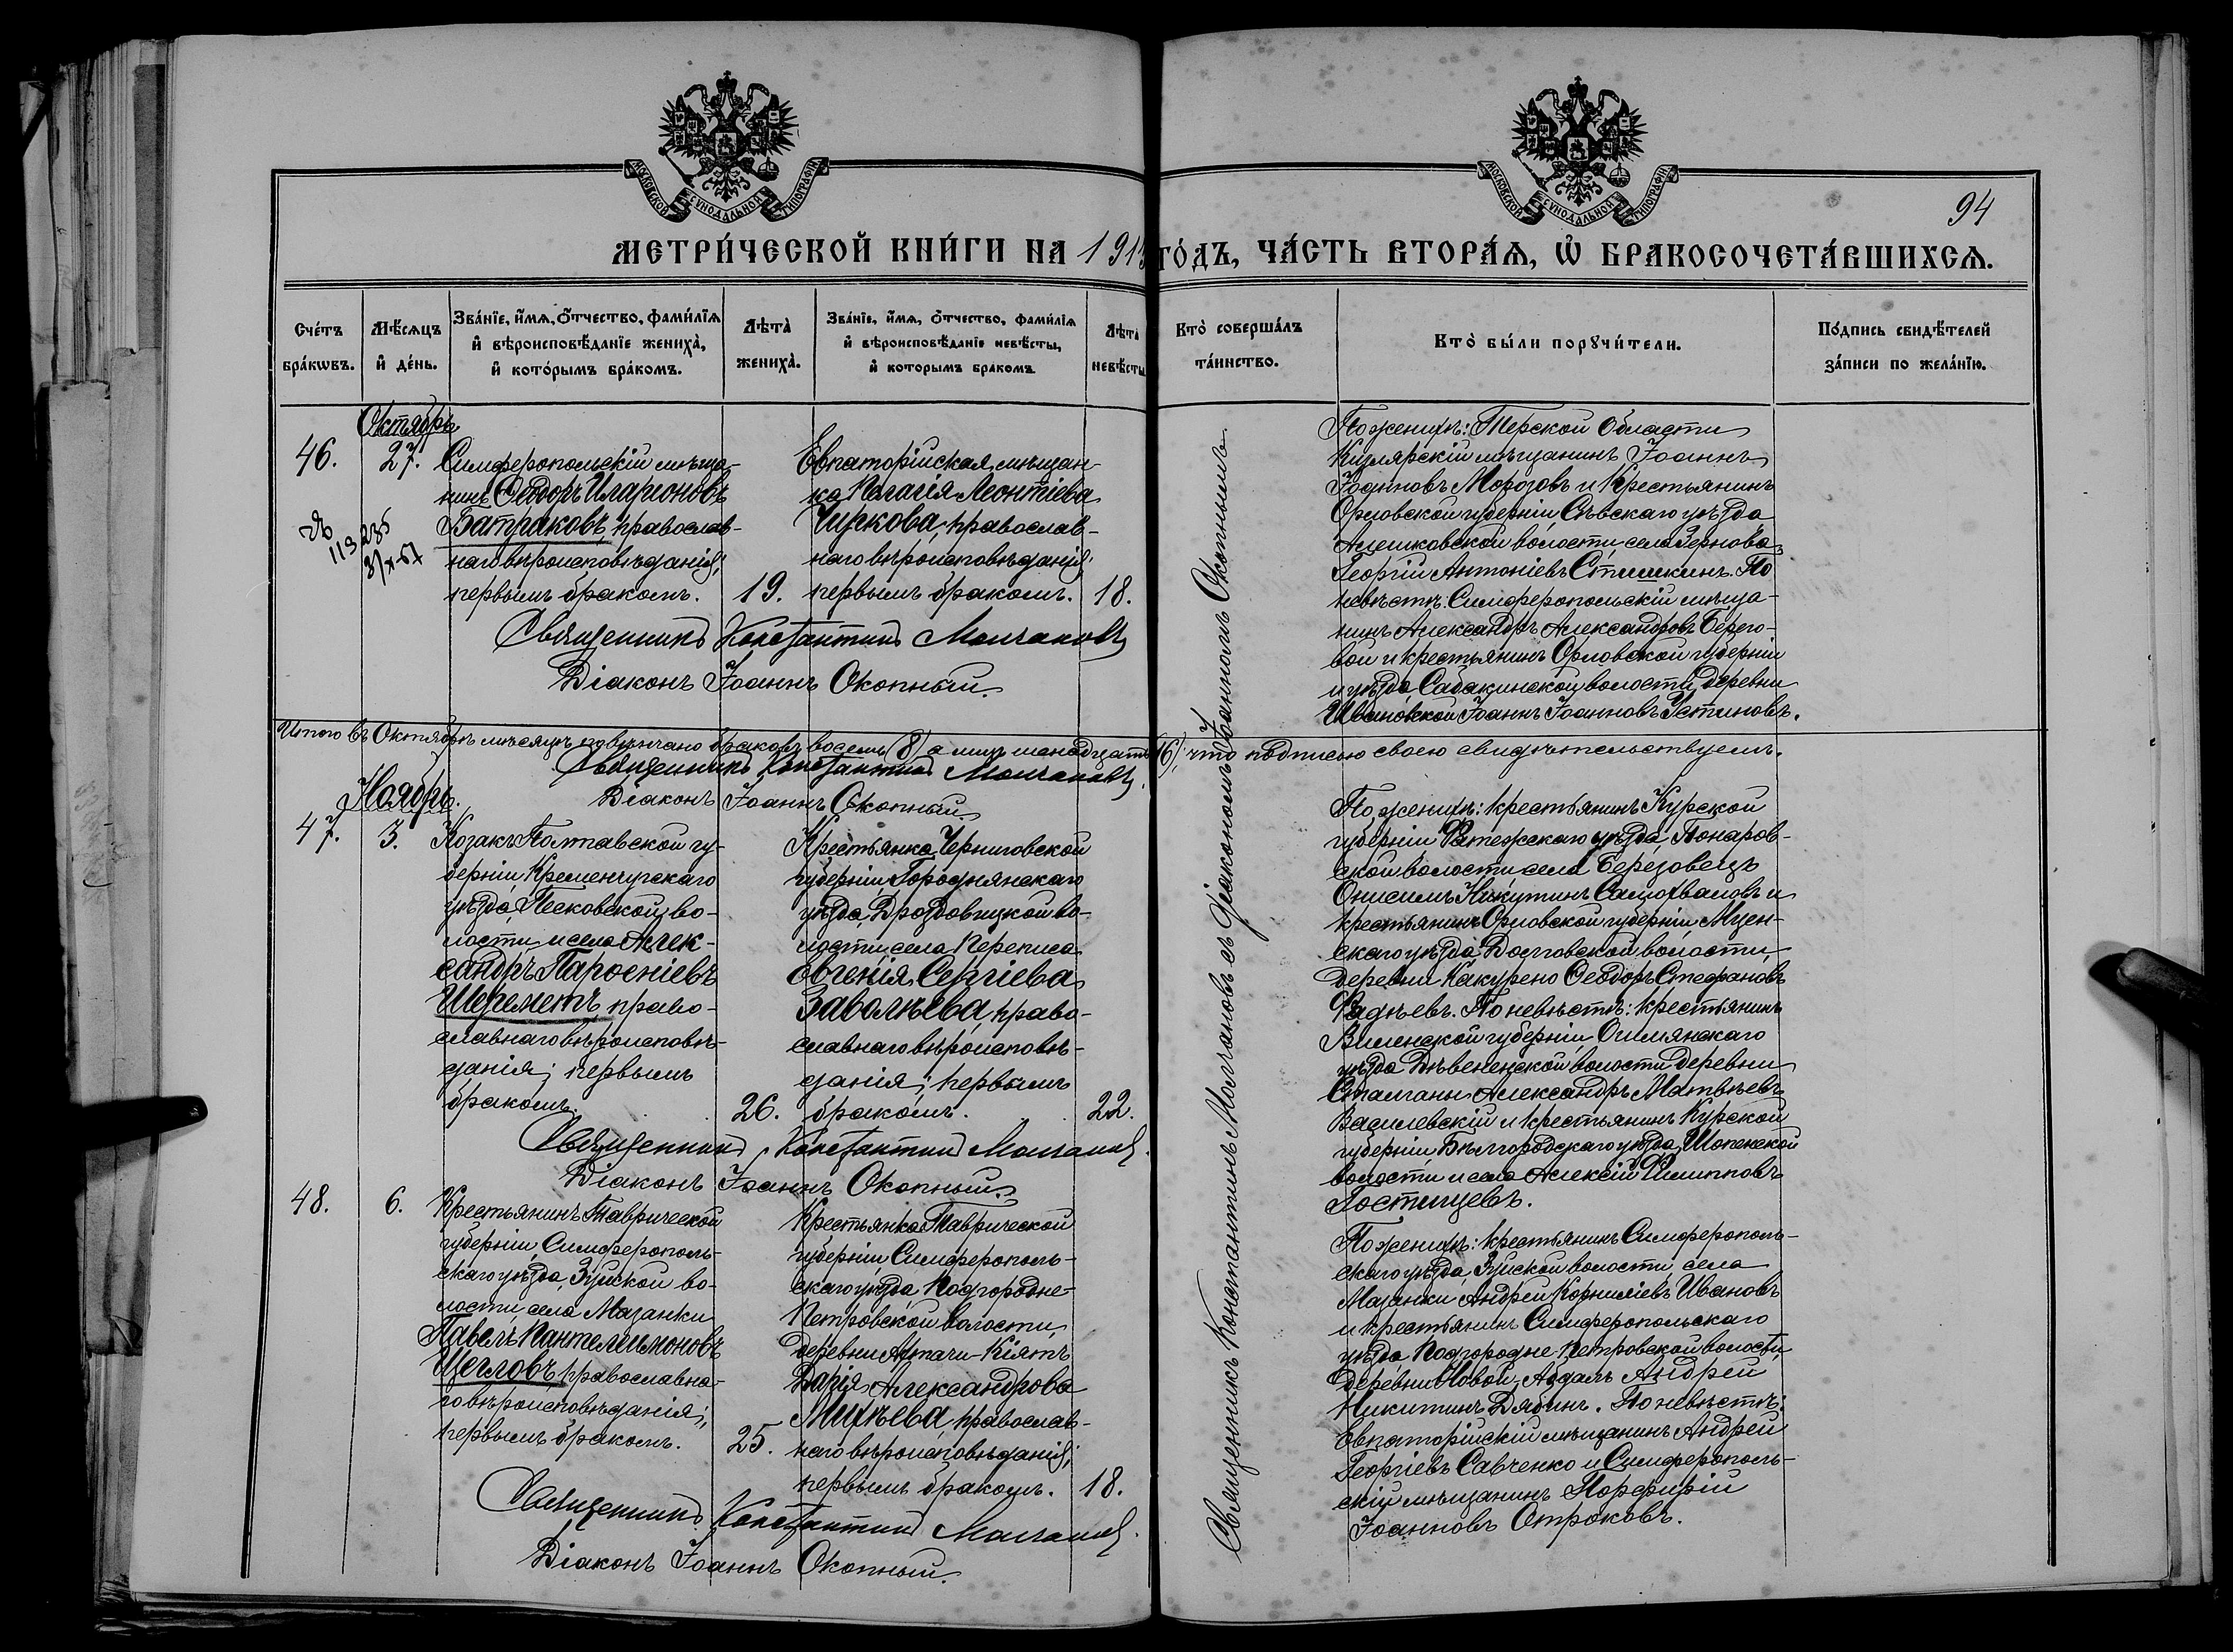 МОСКОВСКОЙ СѴНОДАЛЬНОЙ ТИПОГРАФІИ
МОСКОВСКОЙ СѴНОДАЛЬНОЙ ТИПОГРАФІИ
94
МЕТРИ́ЧЕСКОЙ КНИ́ГИ НА 191
ГО́ДЪ, ЧА́СТЬ ВТОРА́Ѧ, Ѽ БРАКОСОЧЕТА́ВШИХСѦ.
Сче́тъ
бра́кѡвъ.
Мѣ́сѧцъ
и҆ де́нь.
Зва́нїе, и҆́мѧ, ѻ҆́тчество, фами́лїѧ
и҆ вѣроисповѣ́данїе жениха̀,
и҆ кото́рымъ бра́комъ.
Лѣта̀
жениха̀.
Зва́нїе, и҆́мѧ, ѻ҆́тчество, фами́лїѧ
и҆ вѣроисповѣ́данїе невѣ́сты,
и҆ кото́рымъ бра́комъ.
Лѣта̀
невѣ́сты
Кто̀ соверша́лъ
та́инство.
Кто̀ бы́ли порꙋчи́тели.
По́дпись свидѣ́телей
за́писи по жела́нїю.
Октябрь
46.
27.
Симферопольскій мѣща-
нинъ Ѳеодоръ Иларіоновъ
Батраковъ, православ-
наго вѣроисповѣданія;
первымъ бракомъ.
19.
Евпаторійская мѣщан-
ка Пелагія Леонтіева
Чиркова, православ-
наго вѣроисповѣданія;
первымъ бракомъ.
18.
Священникъ Константинъ Молчановъ
Діаконъ Іоаннъ Окопный.
По женихѣ: Терской Области
Кизлярскій мѣщанинъ Іоаннъ
Іоанновъ Морозовъ и крестьянинъ
Орловской губерніи Сѣвскаго уѣзда
Алешковской волости села Зернова
Георгій Антоніевъ Стишкинъ. По
невѣстѣ: Симферопольскій мѣща-
нинъ Александръ Александровъ Берего-
вой и крестьянинъ Орловской губерніи
и уѣзда Сабакинской волости, деревни
Ивановской Іоаннъ Іоанновъ Устиновъ.
Итого въ Октябрѣ мѣсяцѣ повѣнчано браковъ восемь (8) а лицъ шенадцать (16), что подписью своею свидѣтельствуемъ.
Священникъ Константинъ Молчановъ.
Діаконъ Іоаннъ Окопный
Ноябрь.
47.
3.
Козакъ Полтавской гу-
берніи Кременчугскаго
уѣзда, Песковской во-
лости и села Алек-
сандръ Парѳеніевъ
Шереметъ, право-
славнаго вѣроисповѣ-
данія; первымъ
бракомъ.
26.
Крестьянка Черниговской
губерніи Городнянскаго
уѣзда, Дроздовицкой во-
лости, села Переписа
Евгенія Сергіева
Заволѣева, право-
славнаго вѣроисповѣ-
данія; первымъ
бракомъ.
22.
Священникъ Константинъ Молчановъ.
Діаконъ Іоаннъ Окопный.
По женихѣ: крестьянинъ Курской
губерніи Фатежскаго уѣзда, Понаров-
ской волости села Березовецъ
Онисимъ Никитинъ Самохваловъ и
крестьянинъ Орловской губерніи Мцен-
скаго уѣзда, Долговской волости,
деревни Какурено Ѳеодоръ Стефановъ
Фадѣевъ. По невѣстѣ: крестьянинъ
Виленской губерніи, Ошмянскаго
уѣзда Дѣвененской волости деревни
Александръ Матвѣевъ
Василевскій и крестьянинъ Курской
губерніи Бѣлгородскаго уѣзда, Шопенской
волости и села Алексій Филипповъ
Гостищевъ.
48.
6.
Крестьянинъ Таврической
губерніи, Симферополь-
скаго уѣзда, Зуйской во-
лости, села Мазанки
Павелъ Пантелеимоновъ
Щегловъ, православна-
го вѣроисповѣданія;
первымъ бракомъ.
25.
Крестьянка Таврической
губерніи Симферополь-
скаго уѣзда Подгородне-
Петровской волости,
деревни Актачи-Кіятъ
Дарія Александрова
Михѣева, православ-
наго вѣроисповѣданія;
первымъ бракомъ.
18.
Священникъ Константинъ Молчановъ.
Діаконъ Іоаннъ Окопный.
По женихѣ: крестьянинъ Симферополь-
скаго уѣзда Зуйской волости села
Мазанки Андрей Корниліевъ Ивановъ
и крестьянинъ Симферопольскаго
уѣзда Подгородне-Петровской волости,
деревни Новой-Абдалъ Андрей
Никитинъ Дядинъ. По невѣстѣ:
Евпаторійскій мѣщанинъ Андрей
Георгіевъ Савченко и Симферополь-
скій мѣщанинъ Порфирій
Іоанновъ Отроковъ.
Священникъ Константинъ Молчановъ съ діакономъ Іоанномъ Окопнымъ.